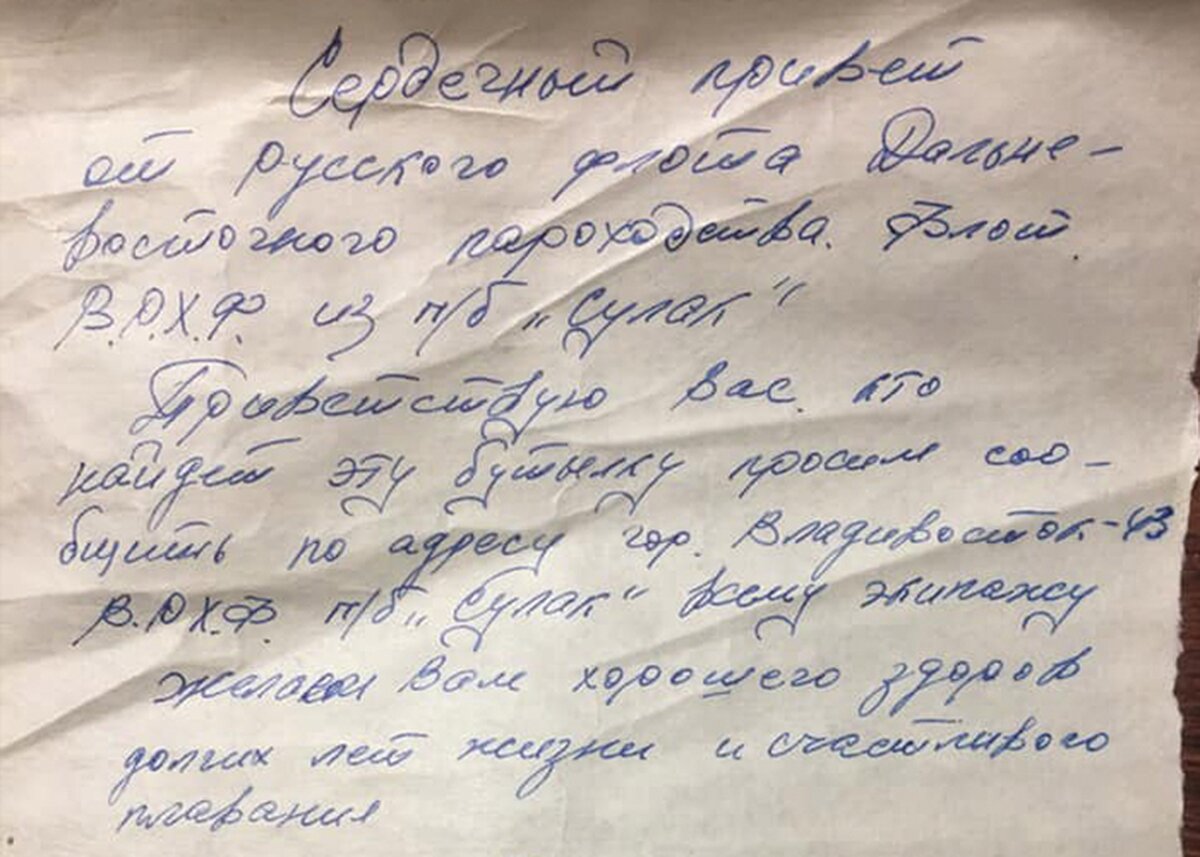 Сердечный привет
от русского флота Дальне-
восточного пароходства. Флот
В.Р.Х.Ф. из п/б „Сулак“
Приветствую Вас. кто
найдет эту бутылку просим соо-
бщить по адресу гор. Владивосток-43
В.Р.Х.Ф. п/б „Сулак“ всему экипажу
желаем Вам хорошего здоров
долгих лет жизни и счастливого
плавания